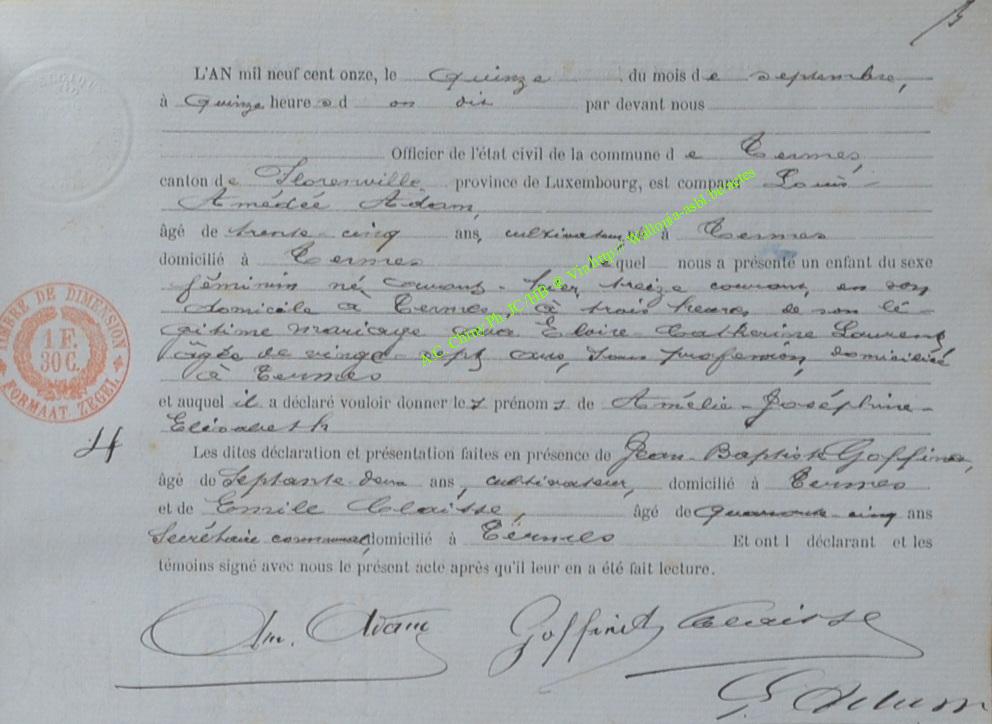 L'AN mil neuf cent onze, le quinze du mois de septembre,
à quinze heure s d on dit par devant nous
Officier de l'état civil de la commune d e Termes,
canton de Florenville province de Luxembourg, est comparu Louis-
Amédée Adam,
âgé de trente-cinq ans, cultivateur à Termes
domicilié à Termes lequel nous a présenté un enfant du sexe
féminin né courant - hier, treize courant, en son
domicile à Termes, à trois heures, de son lé
gitime mariage avec Eloïse-Catherine Laurent
âgée de vingt-sept ans, sans profession, domiciliée
à Termes
et auquel il a déclaré vouloir donner le s prénom s de Amélie-Joséphine-
Elisabeth
Les dites déclaration et présentation faites en présence de Jean-Baptiste Goffinet,
âgé de Septante-deux ans, cultivateur, domicilié à Termes
et de Emile Claisse, âgé de quarante-cinq ans
Secrétaire communal, domicilié à Termes Et ont l déclarant et les
témoins signé avec nous le présent acte après qu'il leur en a été fait lecture.
Am. Adam Goffinet Claisse
TIMBRE DE DIMENSION
1 F.
30 C.
FORMAAT ZEGEL
A.C. Chiny Ph. JC/HB & Via http://Wallonia-asbl.be/actes